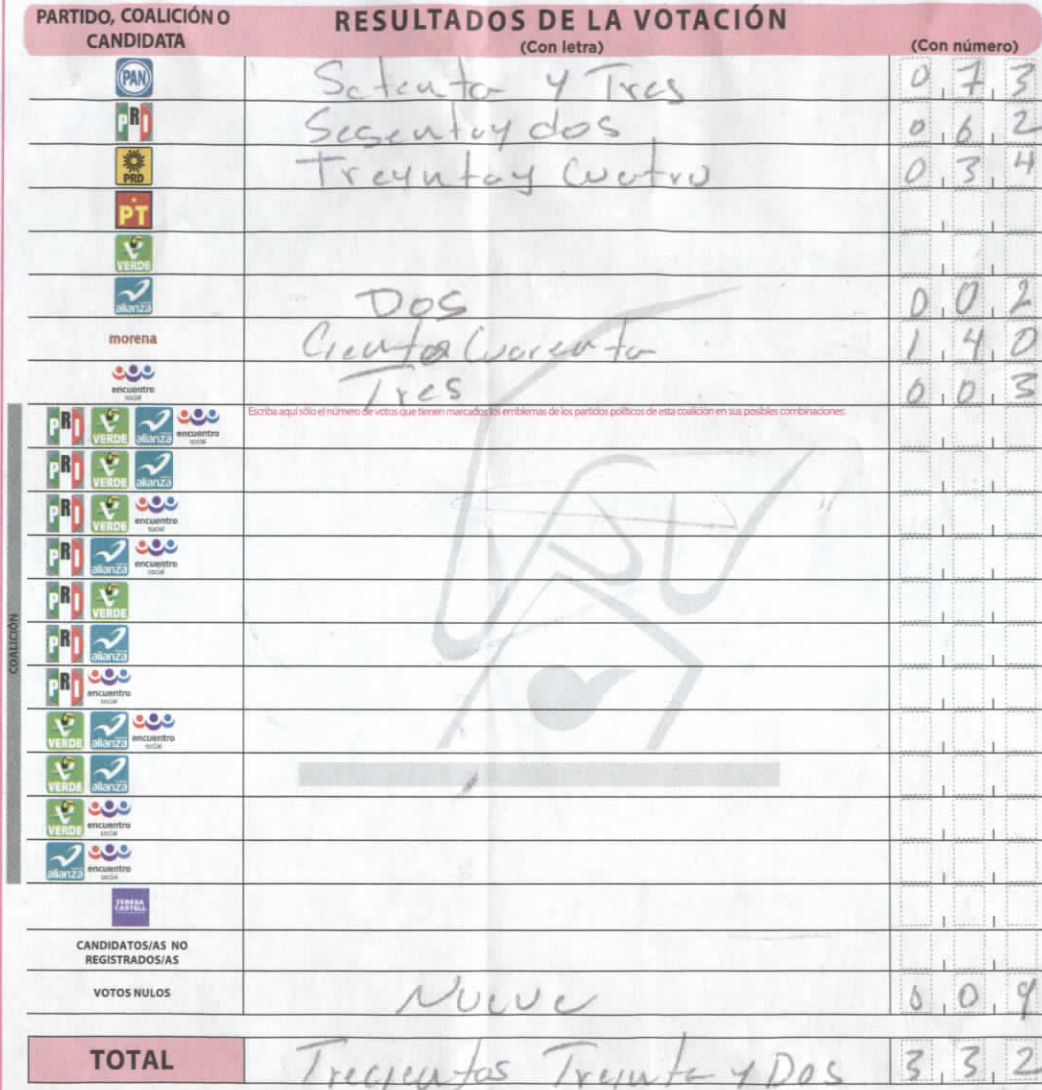 PARTIDO, COALICIÓN O CANDIDATA
RESULTADOS DE LA VOTACIÓN
(Con letra)
(Con número)
PAN Setenta y Tres 0 7 3
PRI Sesentay dos 0 6 2
PRD Treyntay Cuatro 0 3 4
PT
VERDE
alianza Dos 0 0 2
morena Ciento Cuarenta 1 4 0
encuentro social Tres 0 0 3
COALICIÓN
Escriba aquí sólo el número de votos que tienen marcados los emblemas de los partidos políticos de esta coalición en sus posibles combinaciones:
PRI VERDE alianza encuentro social
PRI VERDE alianza
PRI VERDE encuentro social
PRI alianza encuentro social
PRI VERDE
PRI alianza
PRI encuentro social
VERDE alianza encuentro social
VERDE alianza
VERDE encuentro social
alianza encuentro social
TERESA CASTELL
CANDIDATOS/AS NO REGISTRADOS/AS
VOTOS NULOS Nueve 0 0 9
TOTAL Trecientos Treynta y Dos 3 3 2